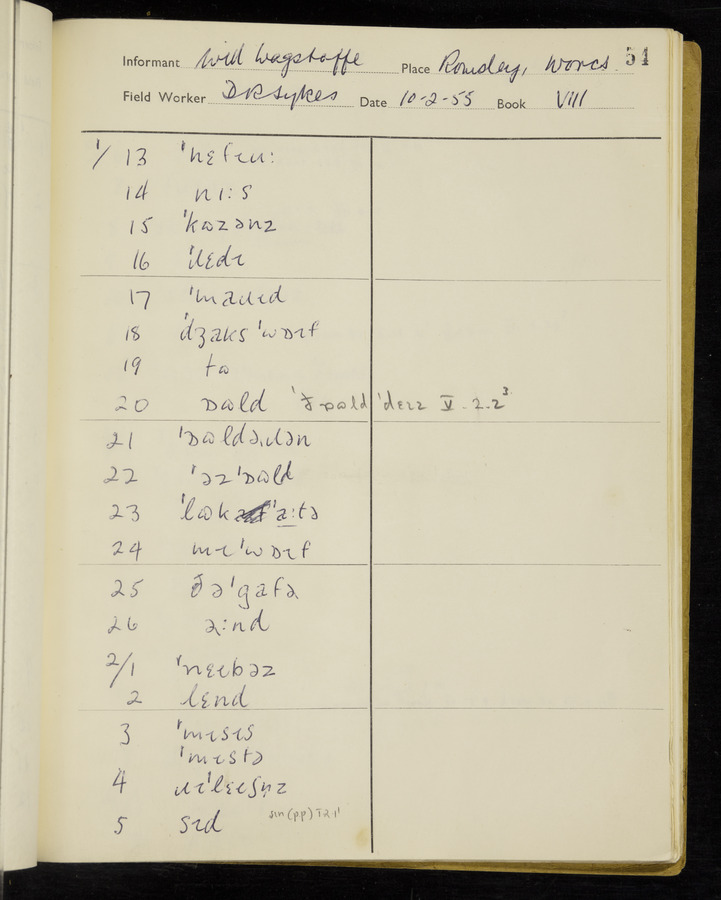 Informant Will Wagstaffe Place Romsley, Worcs. 54
Field Worker D R Sykes Date 10-2-55 Book VIII
1/ 13 ˈnɛfɪu:
14 nɪ:s
15 ˈkɷzənz
16 ˈlɛdɪ
17 ˈmaɹɪd
18 ˈdʒaks ˈwɒɪf
19 tɷ
20 ɒɷld ˈðɒɷld ˈdeɪz V.2.2³
21 ˈɒɷldə
22 ˈəzˈɒɷld
23 ˈlɷk ˈa:tə
24 mɪˈwɒɪf
25 ðəˈgafə
26 a:nd
2/1 ˈnɛɪbəz
2 lɛnd
3 ˈmɪsɪs
ˈmɪstə
4 ɹɪˈlɛɪʃn̩z
5 sɪd sin (pp)